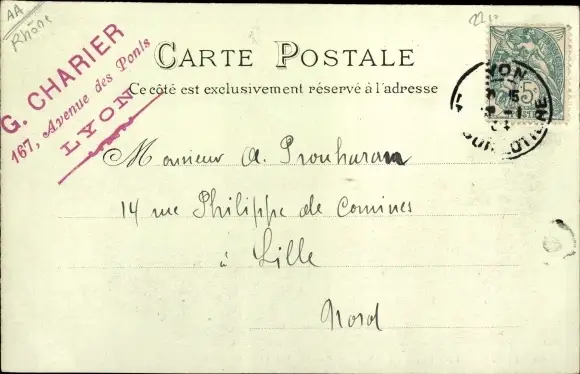 AA
Rhône
G. CHARIER
167, Avenue des Ponts
LYON
CARTE POSTALE
Ce côté est exclusivement réservé à l'adresse
Monsieur A.
14 rue Philippe de Comines
à Lille
Nord
LYON
5